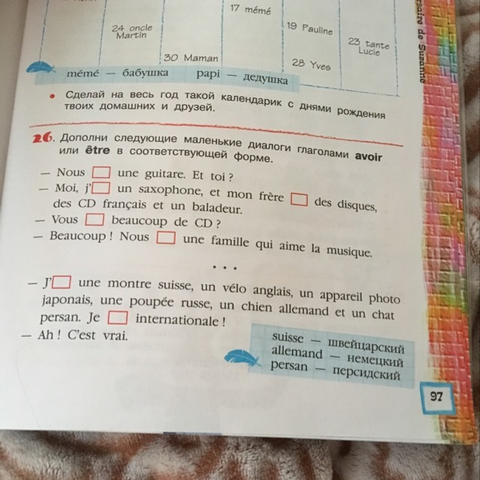 17 mémé
24 oncle
Martin
19 Pauline
23 tante
Lucie
30 Maman
28 Yves
mémé — бабушка papi — дедушка
• Сделай на весь год такой календарик с днями рождения
твоих домашних и друзей.
26. Дополни следующие маленькие диалоги глаголами avoir
или être в соответствующей форме.
— Nous □ une guitare. Et toi ?
— Moi, j'□ un saxophone, et mon frère □ des disques,
des CD français et un baladeur.
— Vous □ beaucoup de CD ?
— Beaucoup ! Nous □ une famille qui aime la musique.
• • •
— J'□ une montre suisse, un vélo anglais, un appareil photo
japonais, une poupée russe, un chien allemand et un chat
persan. Je □ internationale !
— Ah ! C'est vrai.
suisse — швейцарский
allemand — немецкий
persan — персидский
97
de Susanne